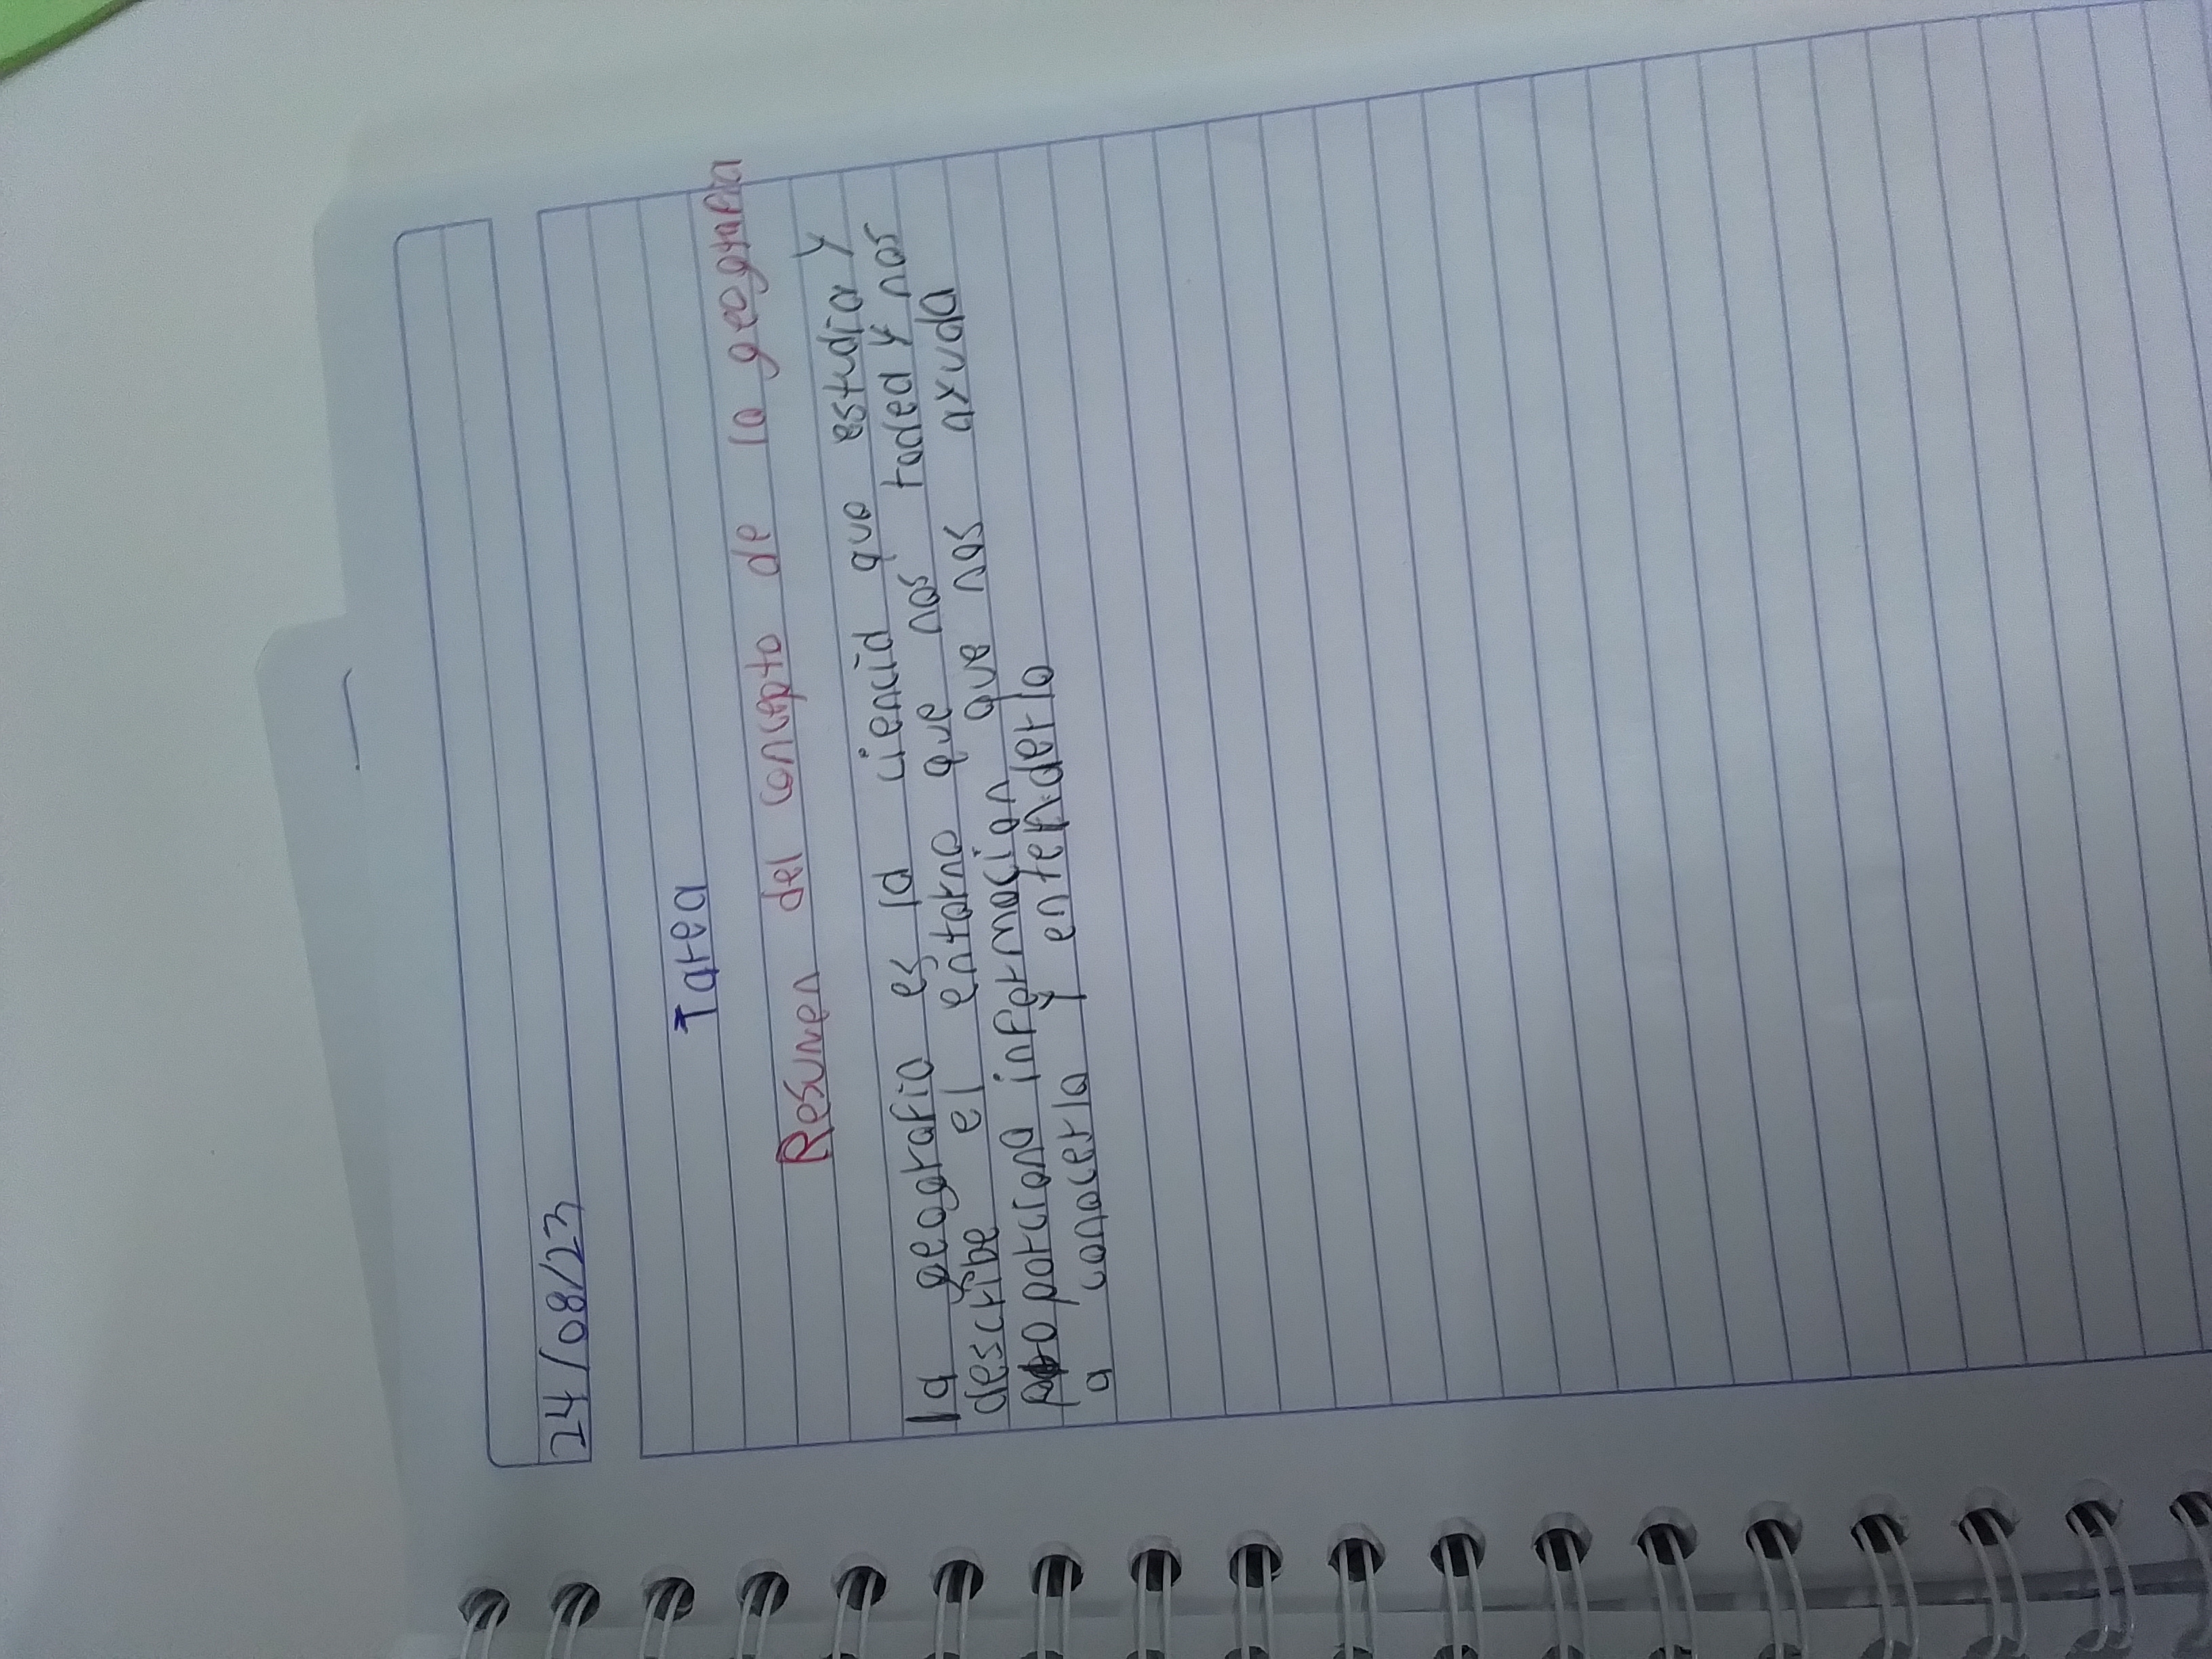 24/08/23
Tarea
Resumen del concepto de la geografia
la geografia es la ciencia que estudia y
describe el entorno que nos rodea y nos
proporciona información que nos ayuda
a conocerla y entenderla